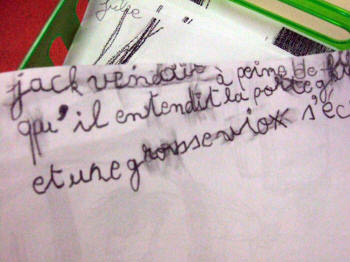 Julie
jack venait à peine de
qu'il entendit la porte
et une grosse viox s'éc